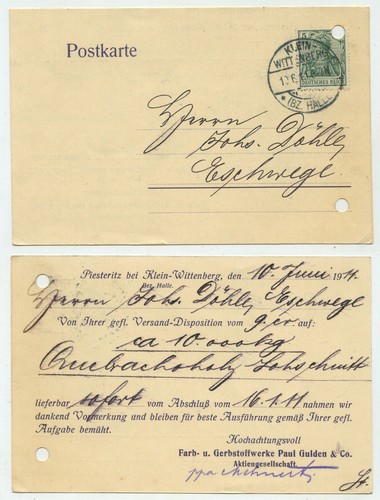 Postkarte
KLEIN-
WITTENBERG
(BZ. HALLE)
DEUTSCHES REICH
Herrn
Johs. Döhle,
Eschwege.
Piesteritz bei Klein-Wittenberg, den 10. Juni 1911.
Bez. Halle.
Herrn Johs. Döhle, Eschwege
Von Ihrer gefl. Versand-Disposition vom 9. cr auf:
ca 10.000kg
lieferbar sofort vom Abschluß vom 16.1.11 nahmen wir
dankend Vormerkung und bleiben für beste Ausführung gemäß Ihrer gefl.
Aufgabe bemüht.
Hochachtungsvoll
Farb- u. Gerbstoffwerke Paul Gulden & Co.
Aktiengesellschaft.
ppa